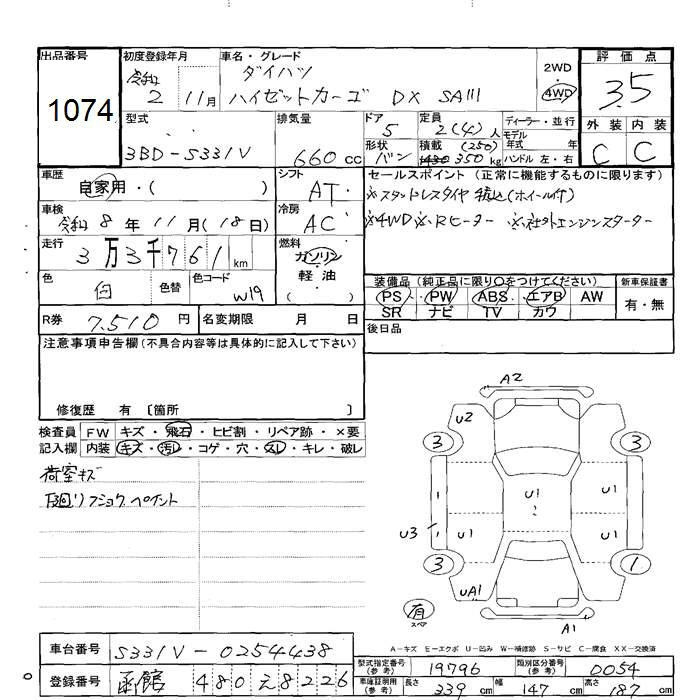 出品番号 1074
初度登録年月 令和 2 11月
車名・グレード ダイハツ
ハイゼットカーゴ DX SAIII
2WD
4WD
評価点 3.5
外装 C 内装 C
型式 3BD-S331V
排気量 660 cc
ドア 5
形状 バン
定員 2(4)人
積載 (250) 350 kg
ディーラー・並行
モデル年式 年
ハンドル 左・右
車歴 自家用・( )
シフト AT
車検 令和 8年 11月(18日)
冷房 AC
走行 3万3千761 km
燃料 ガソリン・軽油 ( )
色 白 色替 色コード W19
R券 7,510 円
名変期限 月 日
セールスポイント(正常に機能するものに限ります)
※スタットドレスタイヤ積込(ホイール付)
※4WD ※Rヒーター ※社外エンジンスターター
装備品(純正品に限り○をつけてください)
PS・PW・ABS・エアB AW
SR ナビ TV カワ
新車保証書 有・無
後日品
注意事項申告欄(不具合内容等は具体的に記入して下さい)
修復歴 有 〔箇所 〕
検査員記入欄
FW キズ・飛石・ヒビ割・リペア跡・×要
内装 キズ・汚レ・コゲ・穴・スレ・キレ・破レ
荷室キズ
下廻りフショクペイント
A2
U2
3 3
1 U1 U1
U3 1 U1
3 1
UA1
有
スペア
A1
A-キズ E-エクボ U-凹み W-補修跡 S-サビ C-腐食 XX-交換済
車台番号 S331V-0254438
登録番号 函館 480 え 8226
型式指定番号(参考) 19796
類別区分番号(参考) 0054
車庫証明用(参考) 長さ 339 cm 幅 147 cm 高さ 187 cm